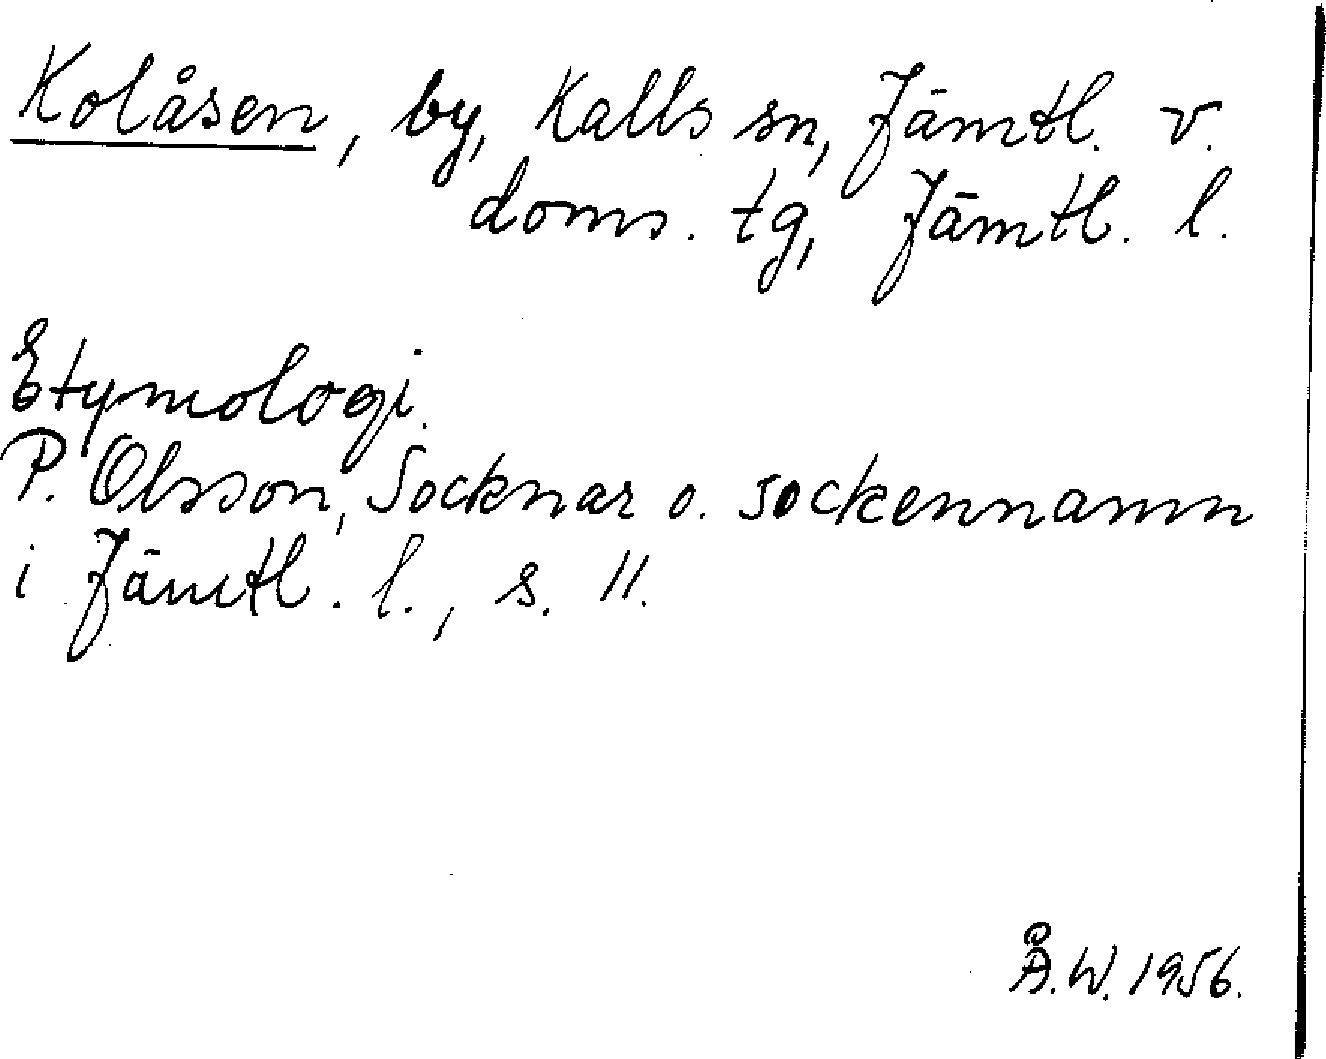 Kolåsen, by, Kalls sn, Jämtl. v.
doms. tg, Jämtl. l.
Etymologi.
P. Olsson, Socknar o. sockennamn
i Jämtl. l., s. 11.
Å.W. 1956.